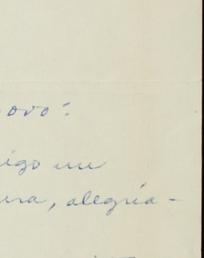 ovo:
igo um
ura, alegria-